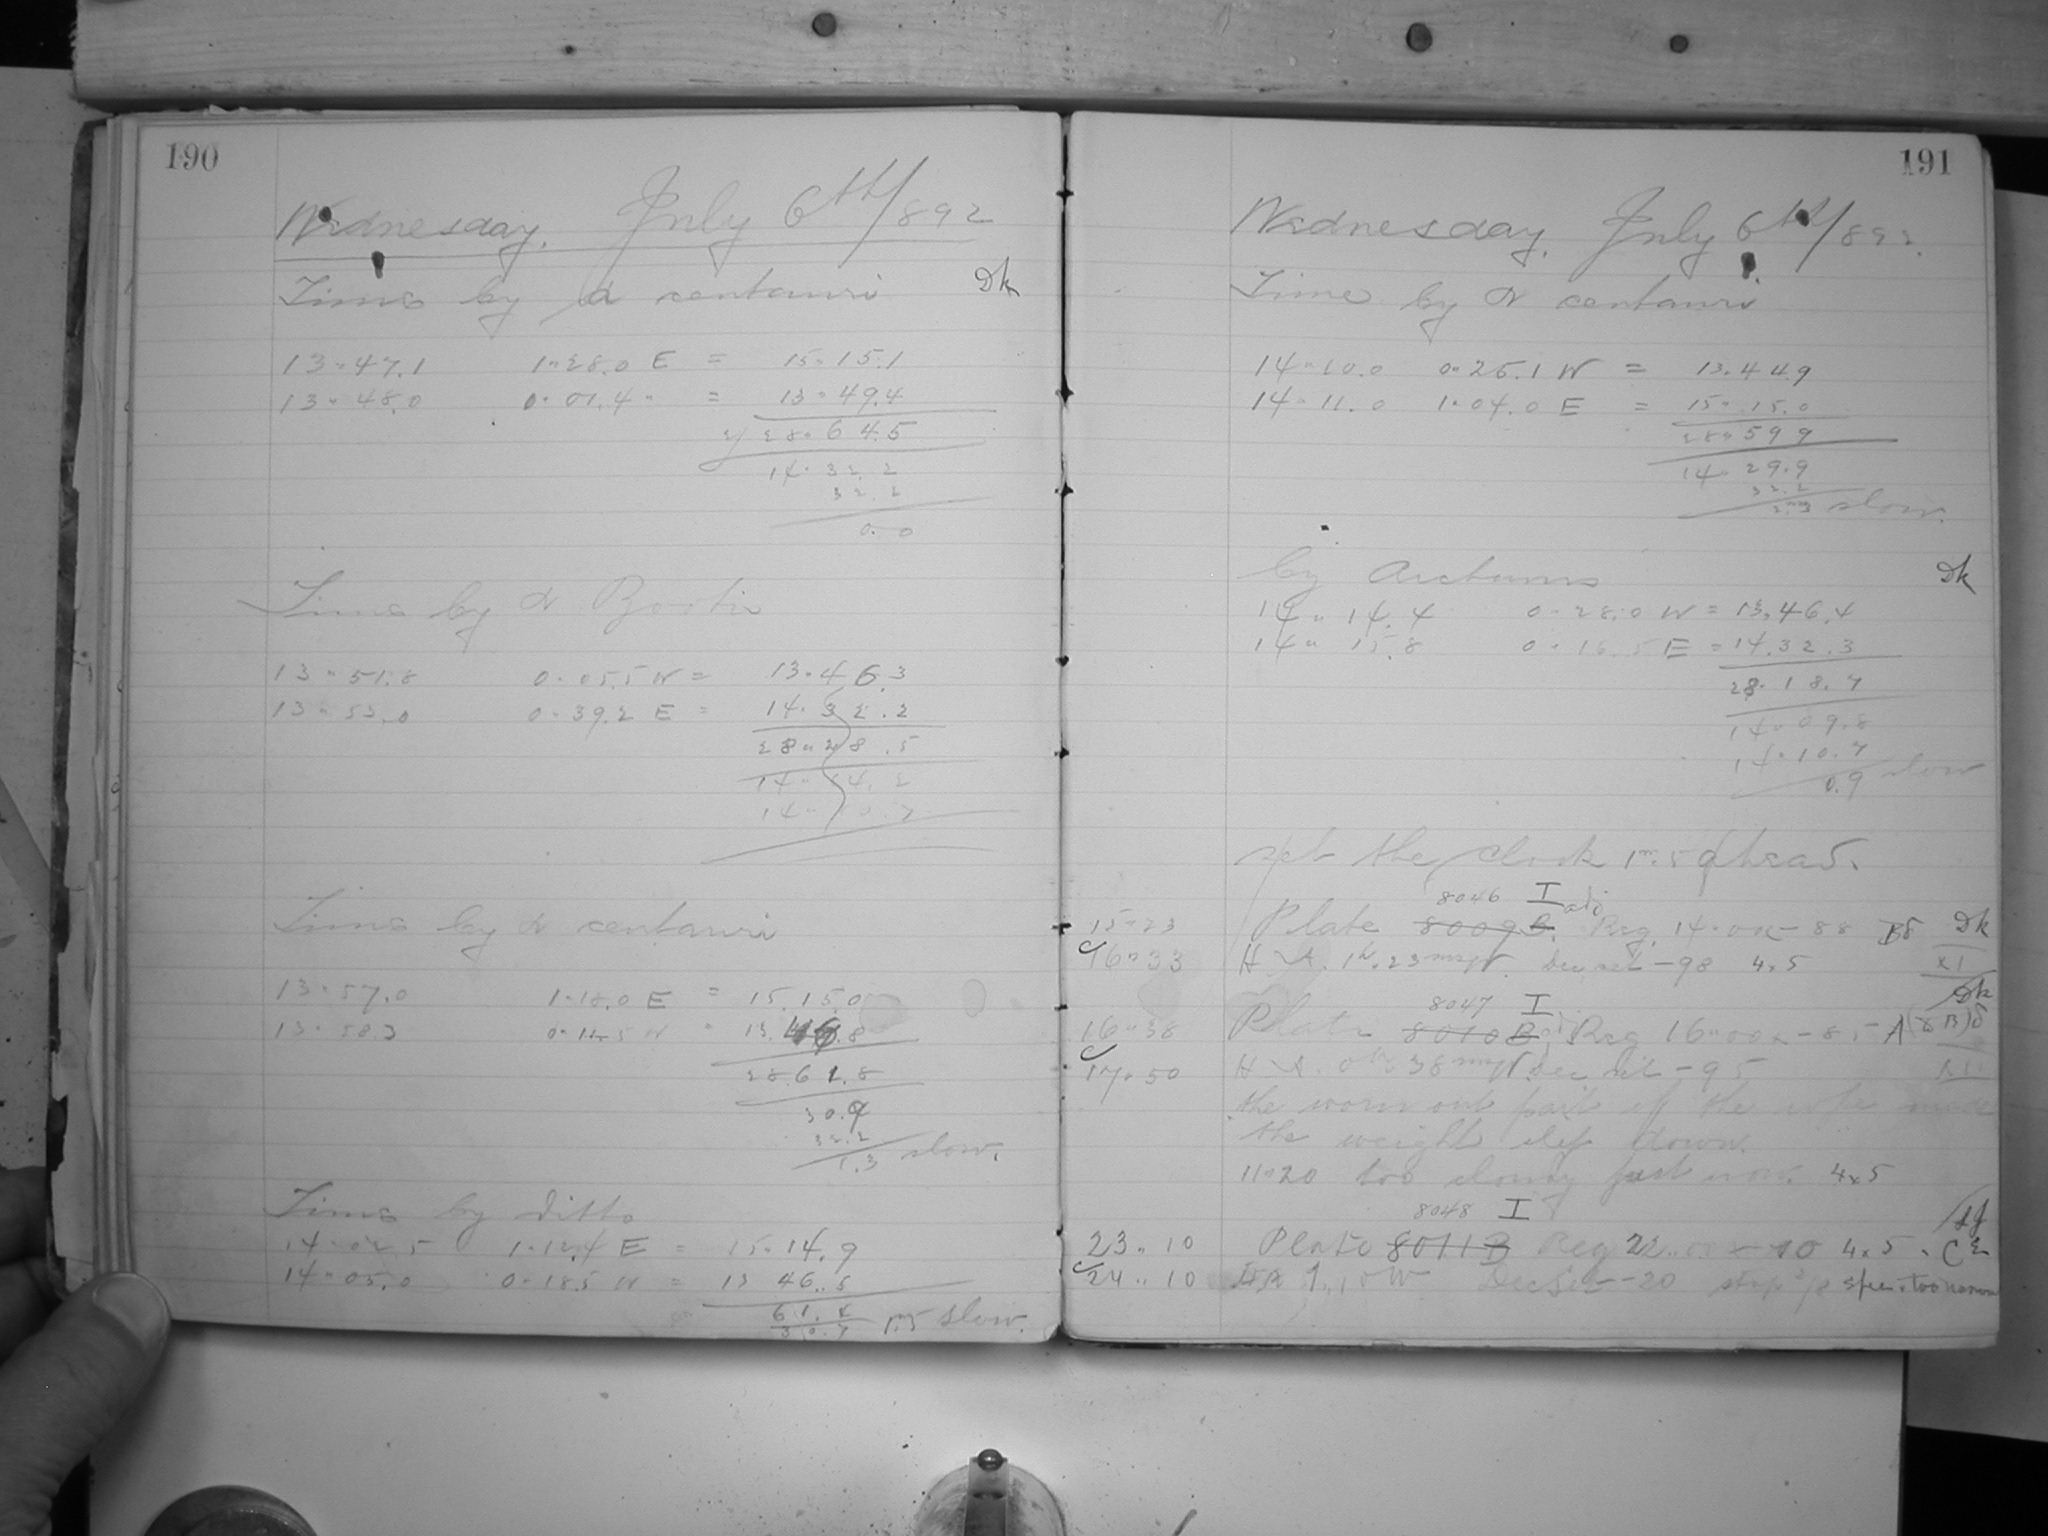 190
Wednesday, July 6th/892
Time by α centauri Dk
13 " 47.1 1 " 28.0 E = 15 " 15.1
13 " 48.0 0 " 01.4 " = 13 " 49.4
2) 28 " 64.5
14 " 32.2
32.2
0.0
Time by α Bootis
13 " 51.8 0 " 05.5 W = 13 " 46.3
13 " 53.0 0 " 39.2 E = 14 " 32.2
28 " 28.5
14 " 14.2
14 " 10.7
Time by α centauri
13 " 57.0 1 " 18.0 E = 15 15.0
13 " 58.3 0 " 11.5 W " 13 46.8
28 61.8
30.9
32.2
1.3 slow.
Time by ditto
14 " 02.5 1 " 12.4 E = 15 " 14.9
14 " 05.0 0 " 18.5 W = 13 46.5
61.4
30.7 1.5 slow.
191
Wednesday, July 6th/892
Time by α centauri
14 " 10.0 0 " 25.1 W = 13.44.9
14 " 11.0 1 " 04.0 E = 15 " 15.0
28 " 59.9
14 " 29.9
32.2
2.3 slow.
by Arcturus Dk
14 " 14.4 0 " 28.0 W = 13.46.4
14 " 15.8 0 " 16.5 E = 14.32.3
28 " 18.7
14 " 09.8
14 " 10.7
0.9 slow
set the clock 1m.5 ahead.
8046 I
15 " 23 Plate 8009B. Reg. 14 " 0 x - 88 Bδ Dk
16 " 33 H A. 1h.23m W. Dec set - 98 4x5 x1
8047 I Dk
16 " 38 Plate 8010B Reg 16 " 00 x - 85 A
17 " 50 H A. 0h 38m W. Dec set - 95
the worn out part of the rope made
the weight slip down.
11 " 20 too cloudy just now. 4x5
8048 I
23 " 10 Plate 8011B Reg 22 " 0 x - 10 4x5
24 " 10 HA 1 " 10 W Dec Set - 20 spec. too narrow